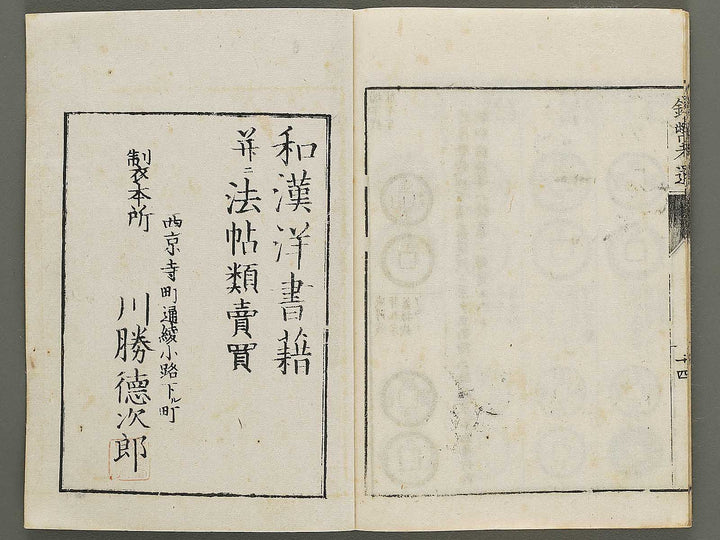 和漢洋書籍
并ニ法帖類賣買
製本所
西京寺町通綾小路下ル町
川勝德次郎
十四